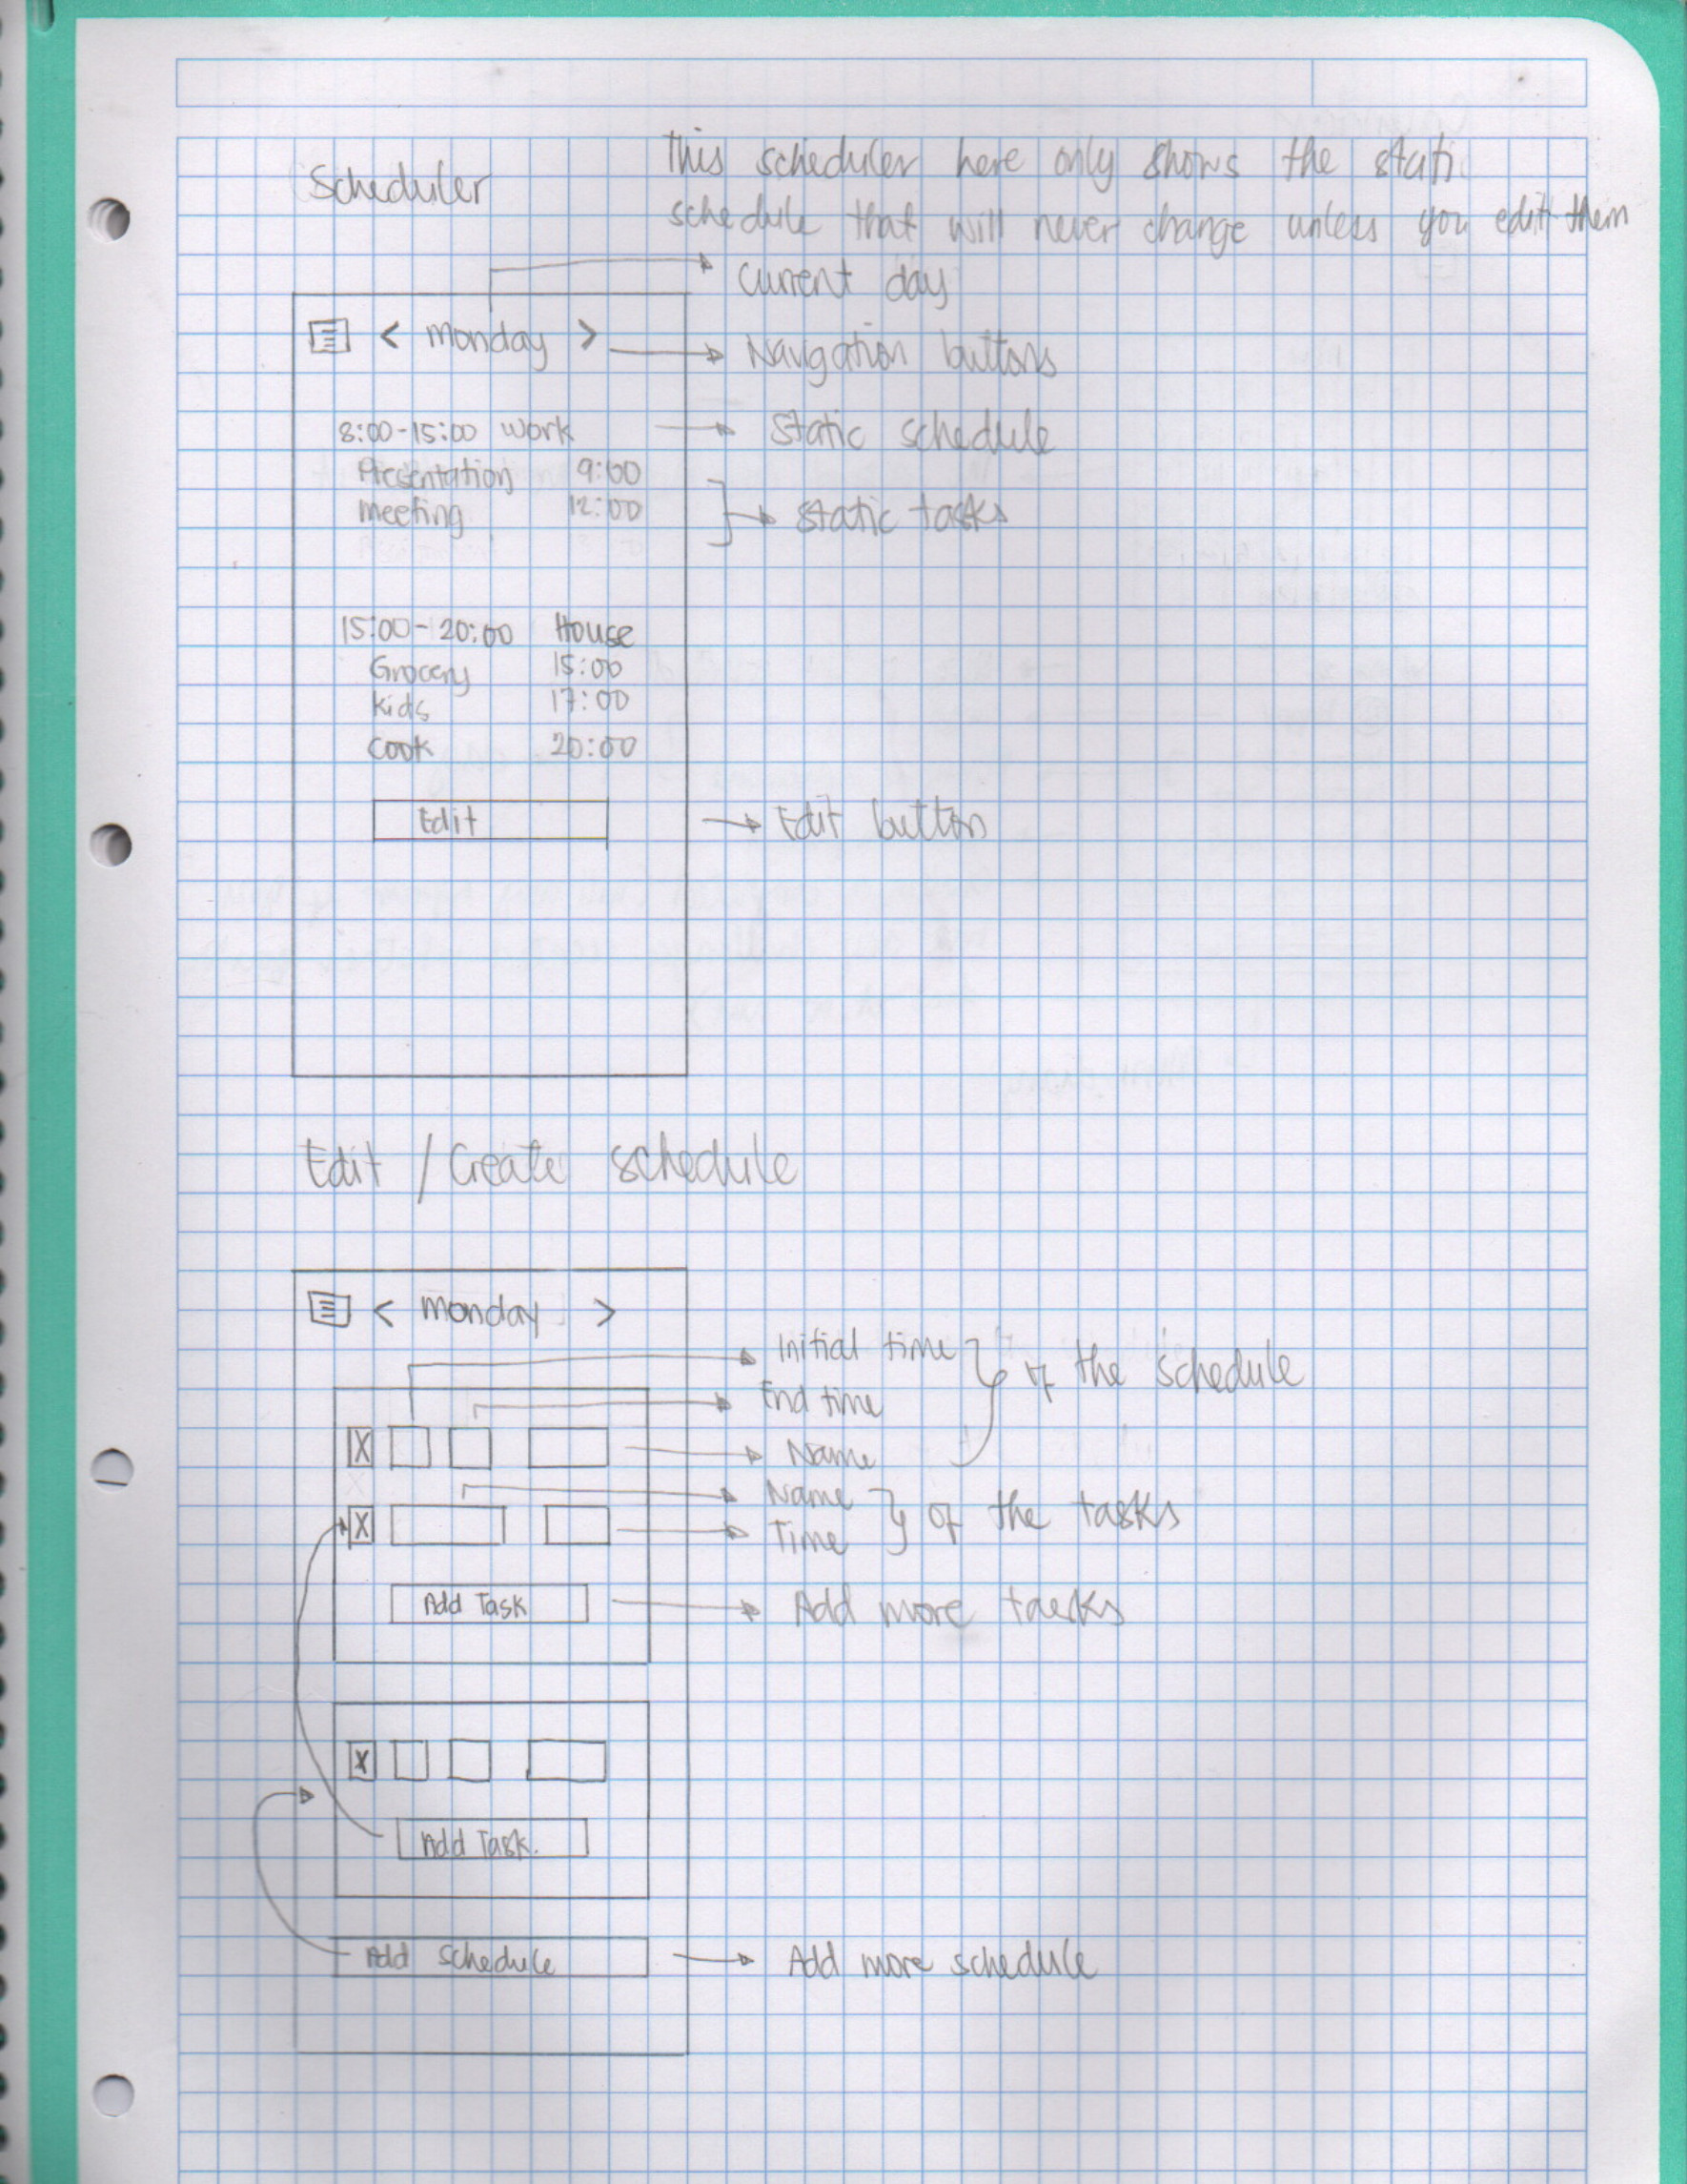 Scheduler
This scheduler here only shows the stati
schedule that will never change unless you edit them
Current day
< monday >
Navigation buttons
8:00-15:00 Work
Static schedule
Presentation 9:00
meeting 12:00
Static tasks
15:00-20:00 House
Grocery 15:00
kids 17:00
cook 20:00
Edit
Edit button
Edit / Create schedule
< monday >
Initial time
of the schedule
End time
X
Name
Name
of the tasks
X
Time
Add Task
Add more tasks
X
Add Task.
Add schedule
Add more schedule